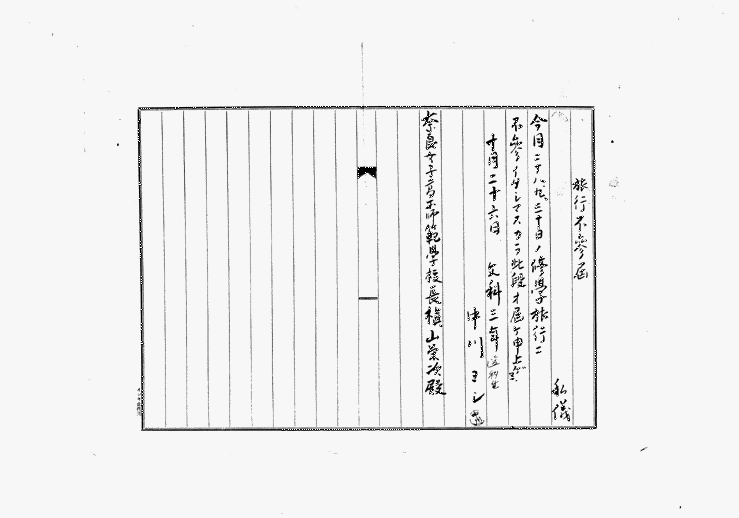 旅行不參届
私儀
今月二十八、九、三十日ノ修學旅行ニ
不參イタシマスカラ此段オ届ケ申上
十月二十六日　文科三年
津川ヨシ
奈良女子高等師範學校長槇山榮次殿